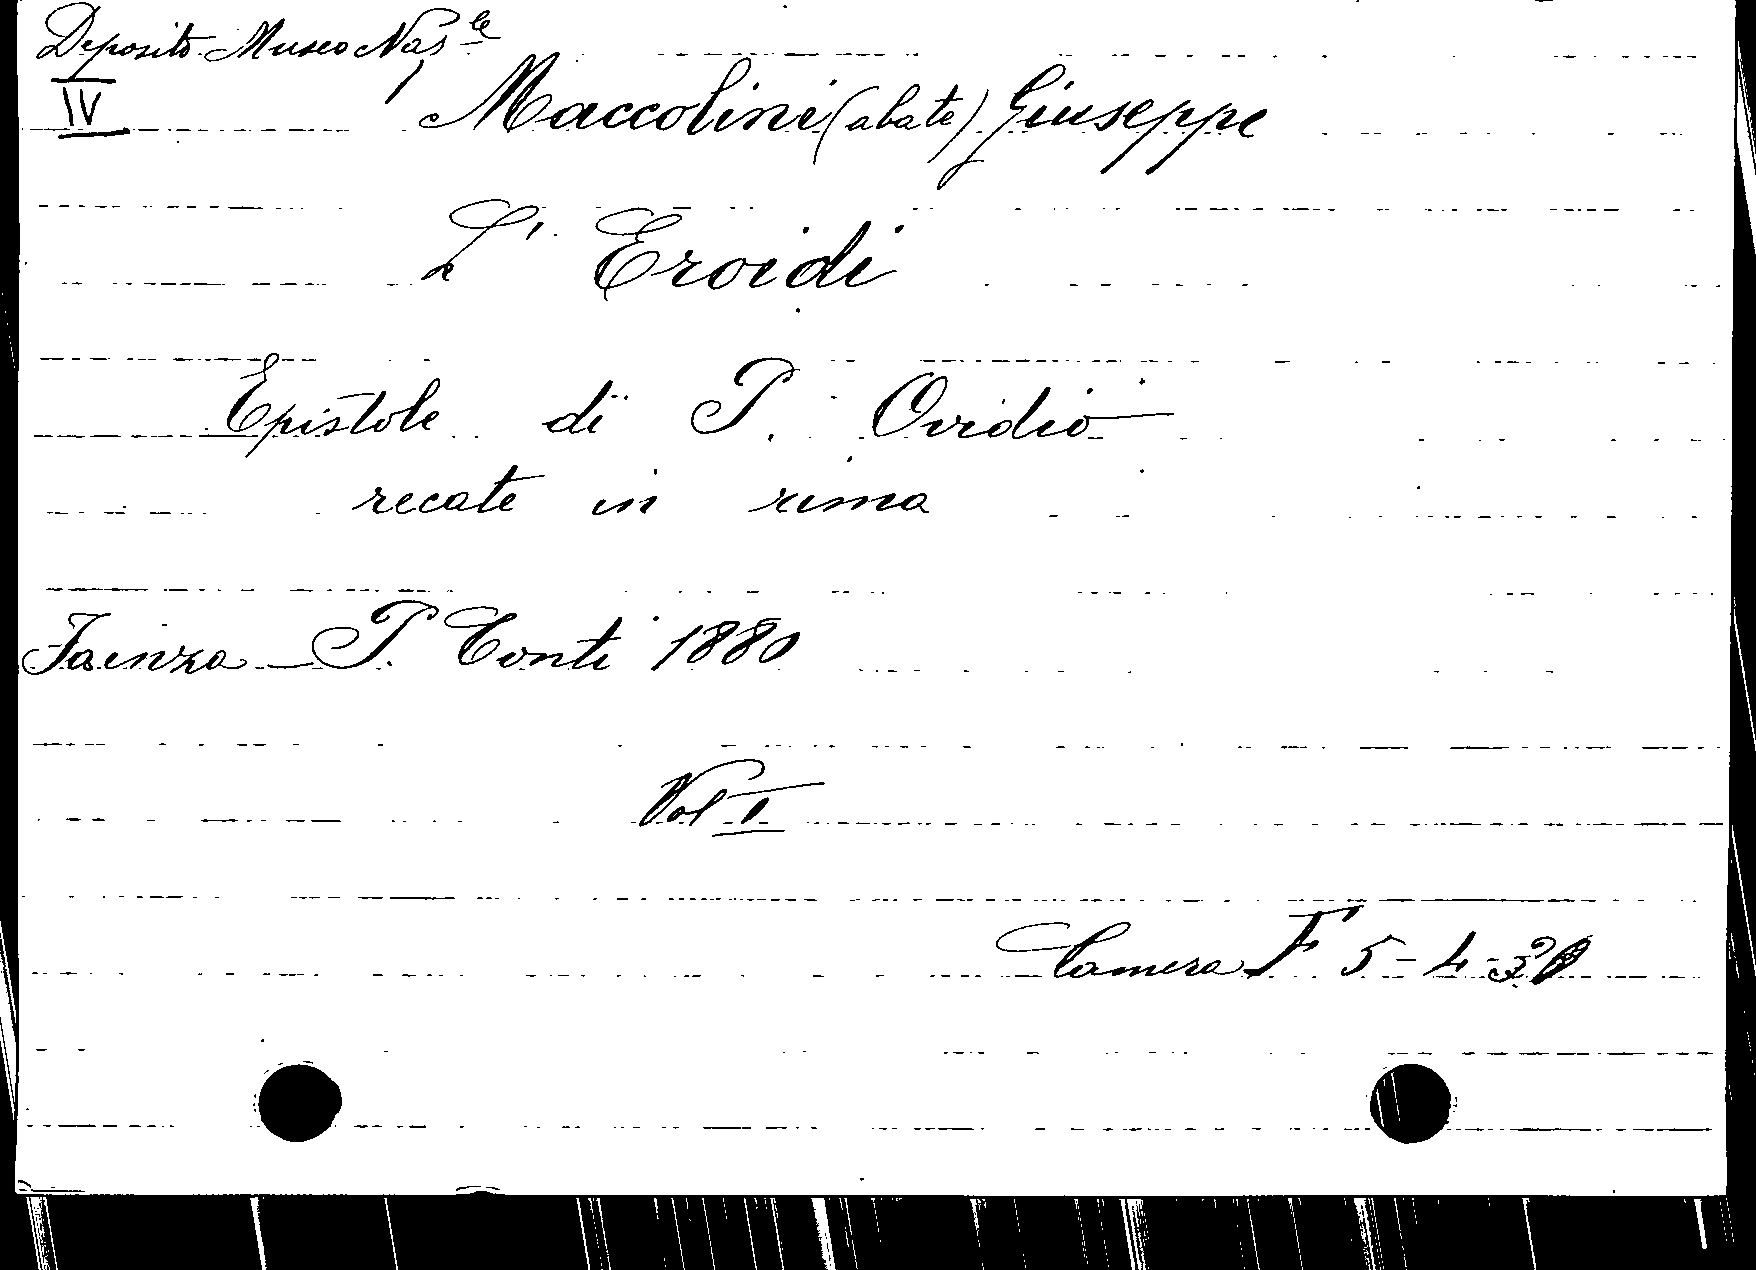 Deposito Museo Naz.le
IV
Maccolini (abate) Giuseppe
L' Eroidi
Epistole di P. Ovidio
recate in rima
Faenza - P. Conti 1880
Vol I
Camera F 5-4-